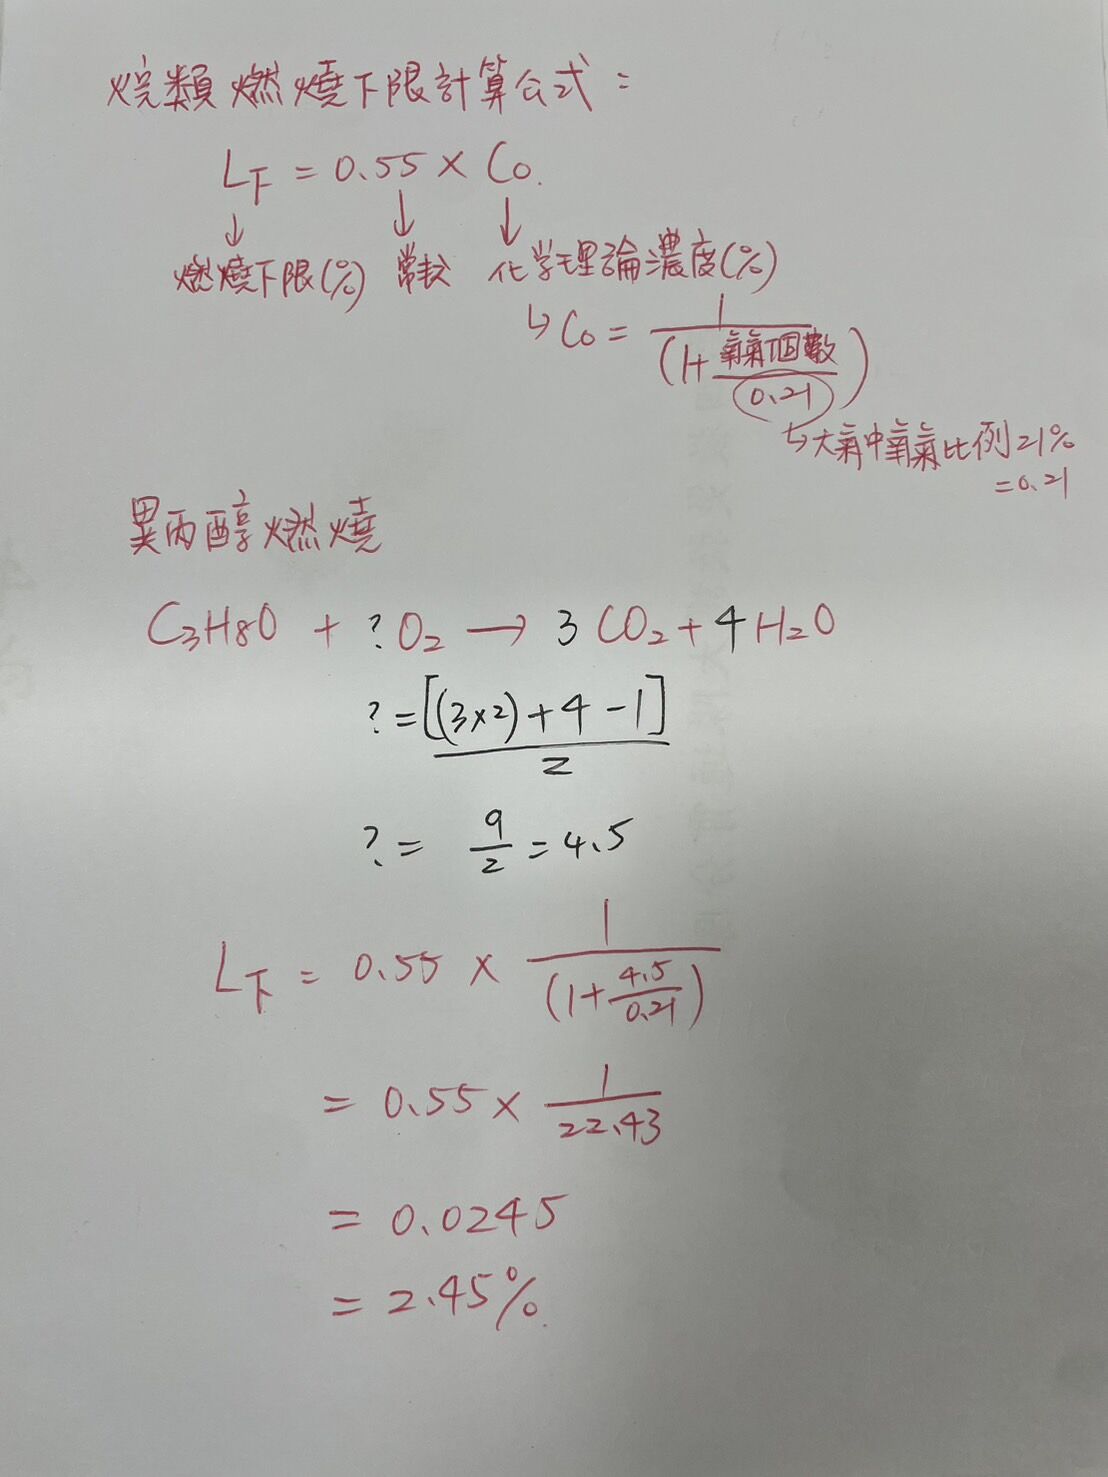 烷類燃燒下限計算公式：
L下 = 0.55 × Co.
↓ ↓ ↓
燃燒下限(%) 常数 化学理論濃度(%)
↳ Co = 1/(1+氧氣個數/0.21)
↳大氣中氧氣比例21%
=0.21
異丙醇燃燒
C₃H8O + ?O₂ → 3CO₂+4H₂O
?=[(3×2)+4-1]/2
?= 9/2=4.5
L下 = 0.55 × 1/(1+4.5/0.21)
= 0.55 × 1/22.43
= 0.0245
= 2.45%.